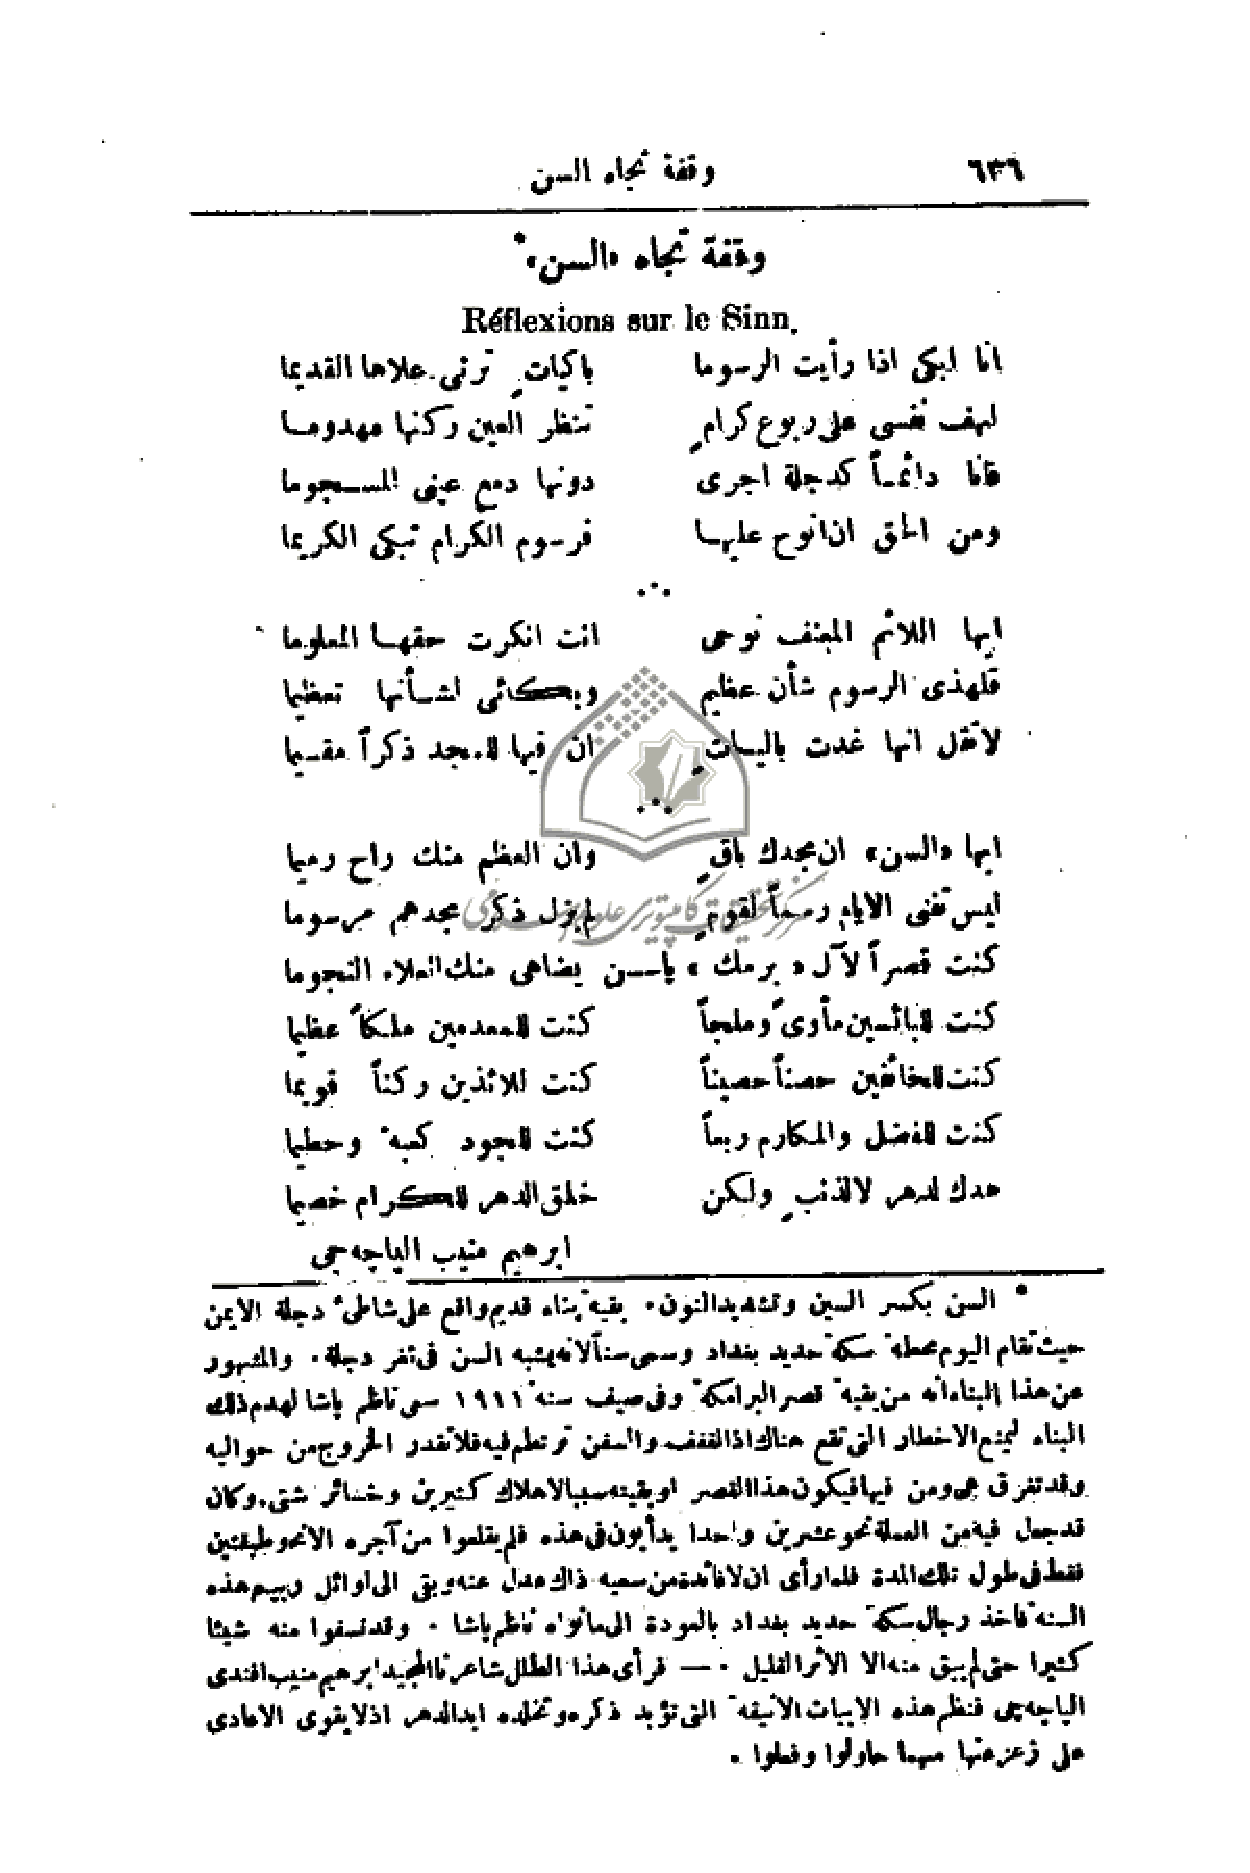 ٦٣٦ وقفة تجاه السن
وقفة تجاه «السن»*
Réflexions sur le Sinn.
انا ابكي اذا رأيت الرسوما باكياتٍ ترثي علاها القديما
لهف نفسي على ربوع كرامٍ تنظر العين ركنها مهدوما
فانا دائماً كدجلة اجرى دونها دمع عيني المسجوما
ومن الحق ان انوح عليها فرسوم الكرام تبكي الكريما
٠٠٠
ايها اللائم المعنف نوحى انت انكرت حقها المعلوما
فلهذى الرسوم شأن عظيم وبكائي لشأنها تعظيما
لا تقل انها غدت بالياتٍ ان فيها للمجد ذكراً مقيما
٠٠٠
ايها «السن» ان مجدك باقٍ وان العظم منك راح رميما
ليس تفنى الايام رسماً لقومٍ لم يزل ذكر مجدهم مرسوما
كنت قصراً لآل «برمك» ياسن يضاهي منك العلاء النجوما
كنت للبائسين مأوىً وملجاً كنت للمعدمين ملكاً عظيما
كنت للخائفين حصناً حصيناً كنت للائذين ركناً قويما
كنت للفضل والمكارم ربعاً كنت للجود كعبة وحطيما
هدك الدهر لا لذنبٍ ولكن خلق الدهر للكرام خصيما
ابرهيم منيب الباچه جي
* السن بكسر السين وتشديد النون. بقية بناء قديم واقع على شاطئ دجلة الايمن
حيث تقام اليوم محطة سكة حديد بغداد وسمي سناً لانه يشبه السن في ثغر دجلة. والمشهور
عن هذا البناء انه من بقية قصر البرامكة وفي صيف سنة ١٩١١ سعى ناظم پاشا لهدم ذلك
البناء ليمنع الاخطار التي تقع هناك اذ القفف والسفن ترتطم فيه فلا تقدر الخروج من حواليه
وقد تغرق هي ومن فيها فيكون هذا القصر او بقيته سببا لاهلاك كثيرين وخسائر شتى. وكان
قد جعل فيه من العملة نحو عشرين واحدا يدأبون في هذه فلم يقلعوا من آجره الا نحو طبقتين
فقط في طول تلك المدة فلما رأى ان لا فائدة من سعيه ذاك عدل عنه وبقي الى اوائل ربيع هذه
السنة فاخذ رجال سكة حديد بغداد بالعودة الى ما نواه ناظم پاشا. وقد نسفوا منه شيئا
كثيرا حتى لم يبق منه الا الأثر القليل. — فرأى هذا الطلل شاعرنا المجيد ابرهيم منيب افندى
الباچه جي فنظم هذه الابيات الانيقة التي تؤبد ذكره وتخلده ابد الدهر اذ لا يقوى الاعادى
على زعزعتها مهما حاولوا وفعلوا.